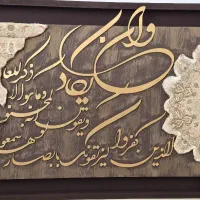 وان يكاد
الذين كفروا ليزلقونك بابصارهم سمعوا
ويقولون لمجنون
وما هو الا
ذكر